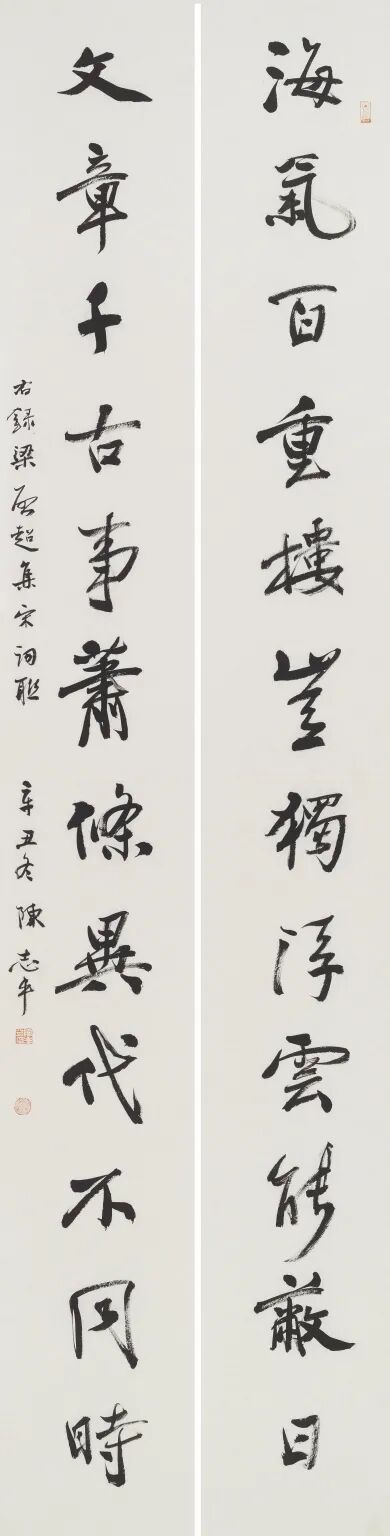 海氣百重樓豈獨浮雲能蔽日
文章千古事蕭條異代不同時
右録梁啟超集宋詞聯
辛丑冬陳志平